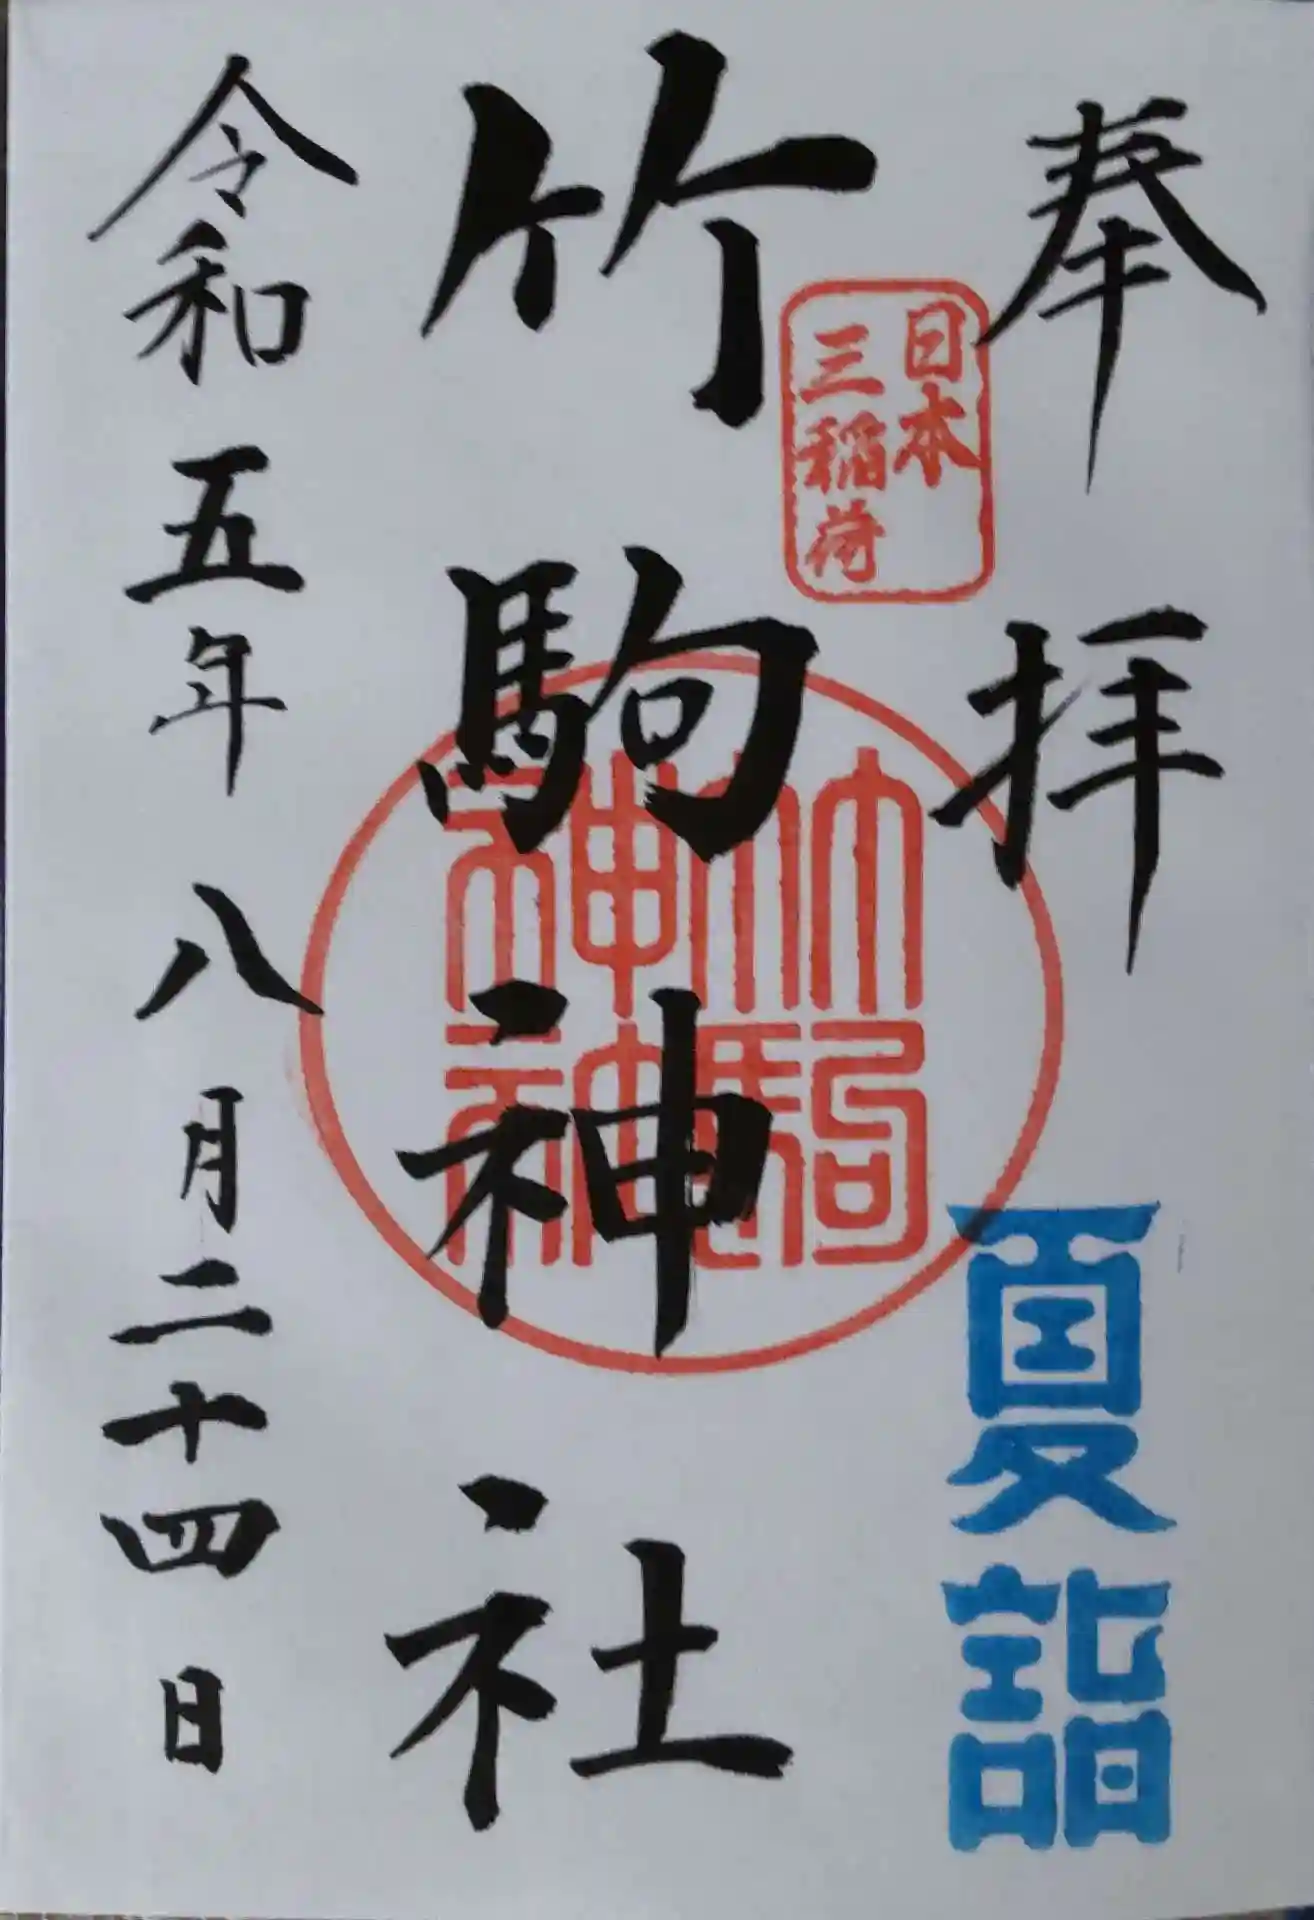 奉拝
日本
三稲荷
夏詣
竹駒神社
竹駒
神社
令和五年八月二十四日